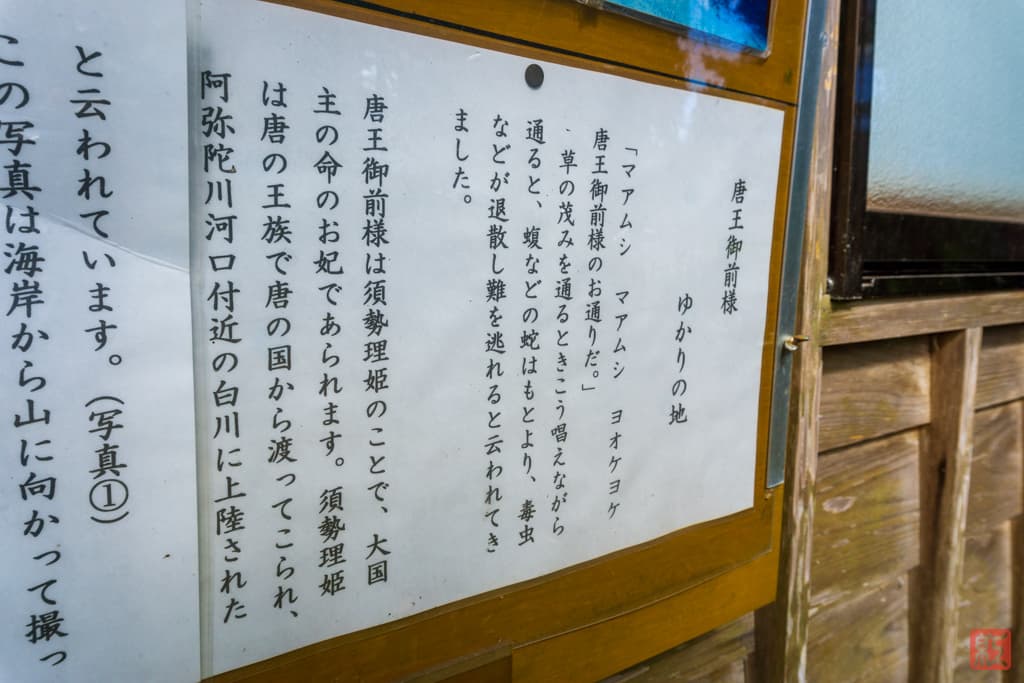 唐王御前様
ゆかりの地
「マアムシ　マアムシ　ヨオケヨケ
唐王御前様のお通りだ。」
草の茂みを通るときこう唱えながら
通ると、蝮などの蛇はもとより、毒虫
などが退散し難を逃れると云われてき
ました。
唐王御前様は須勢理姫のことで、大国
主の命のお妃であられます。須勢理姫
は唐の王族で唐の国から渡ってこられ、
阿弥陀川河口付近の白川に上陸された
と云われています。（写真①）
この写真は海岸から山に向かって撮っ